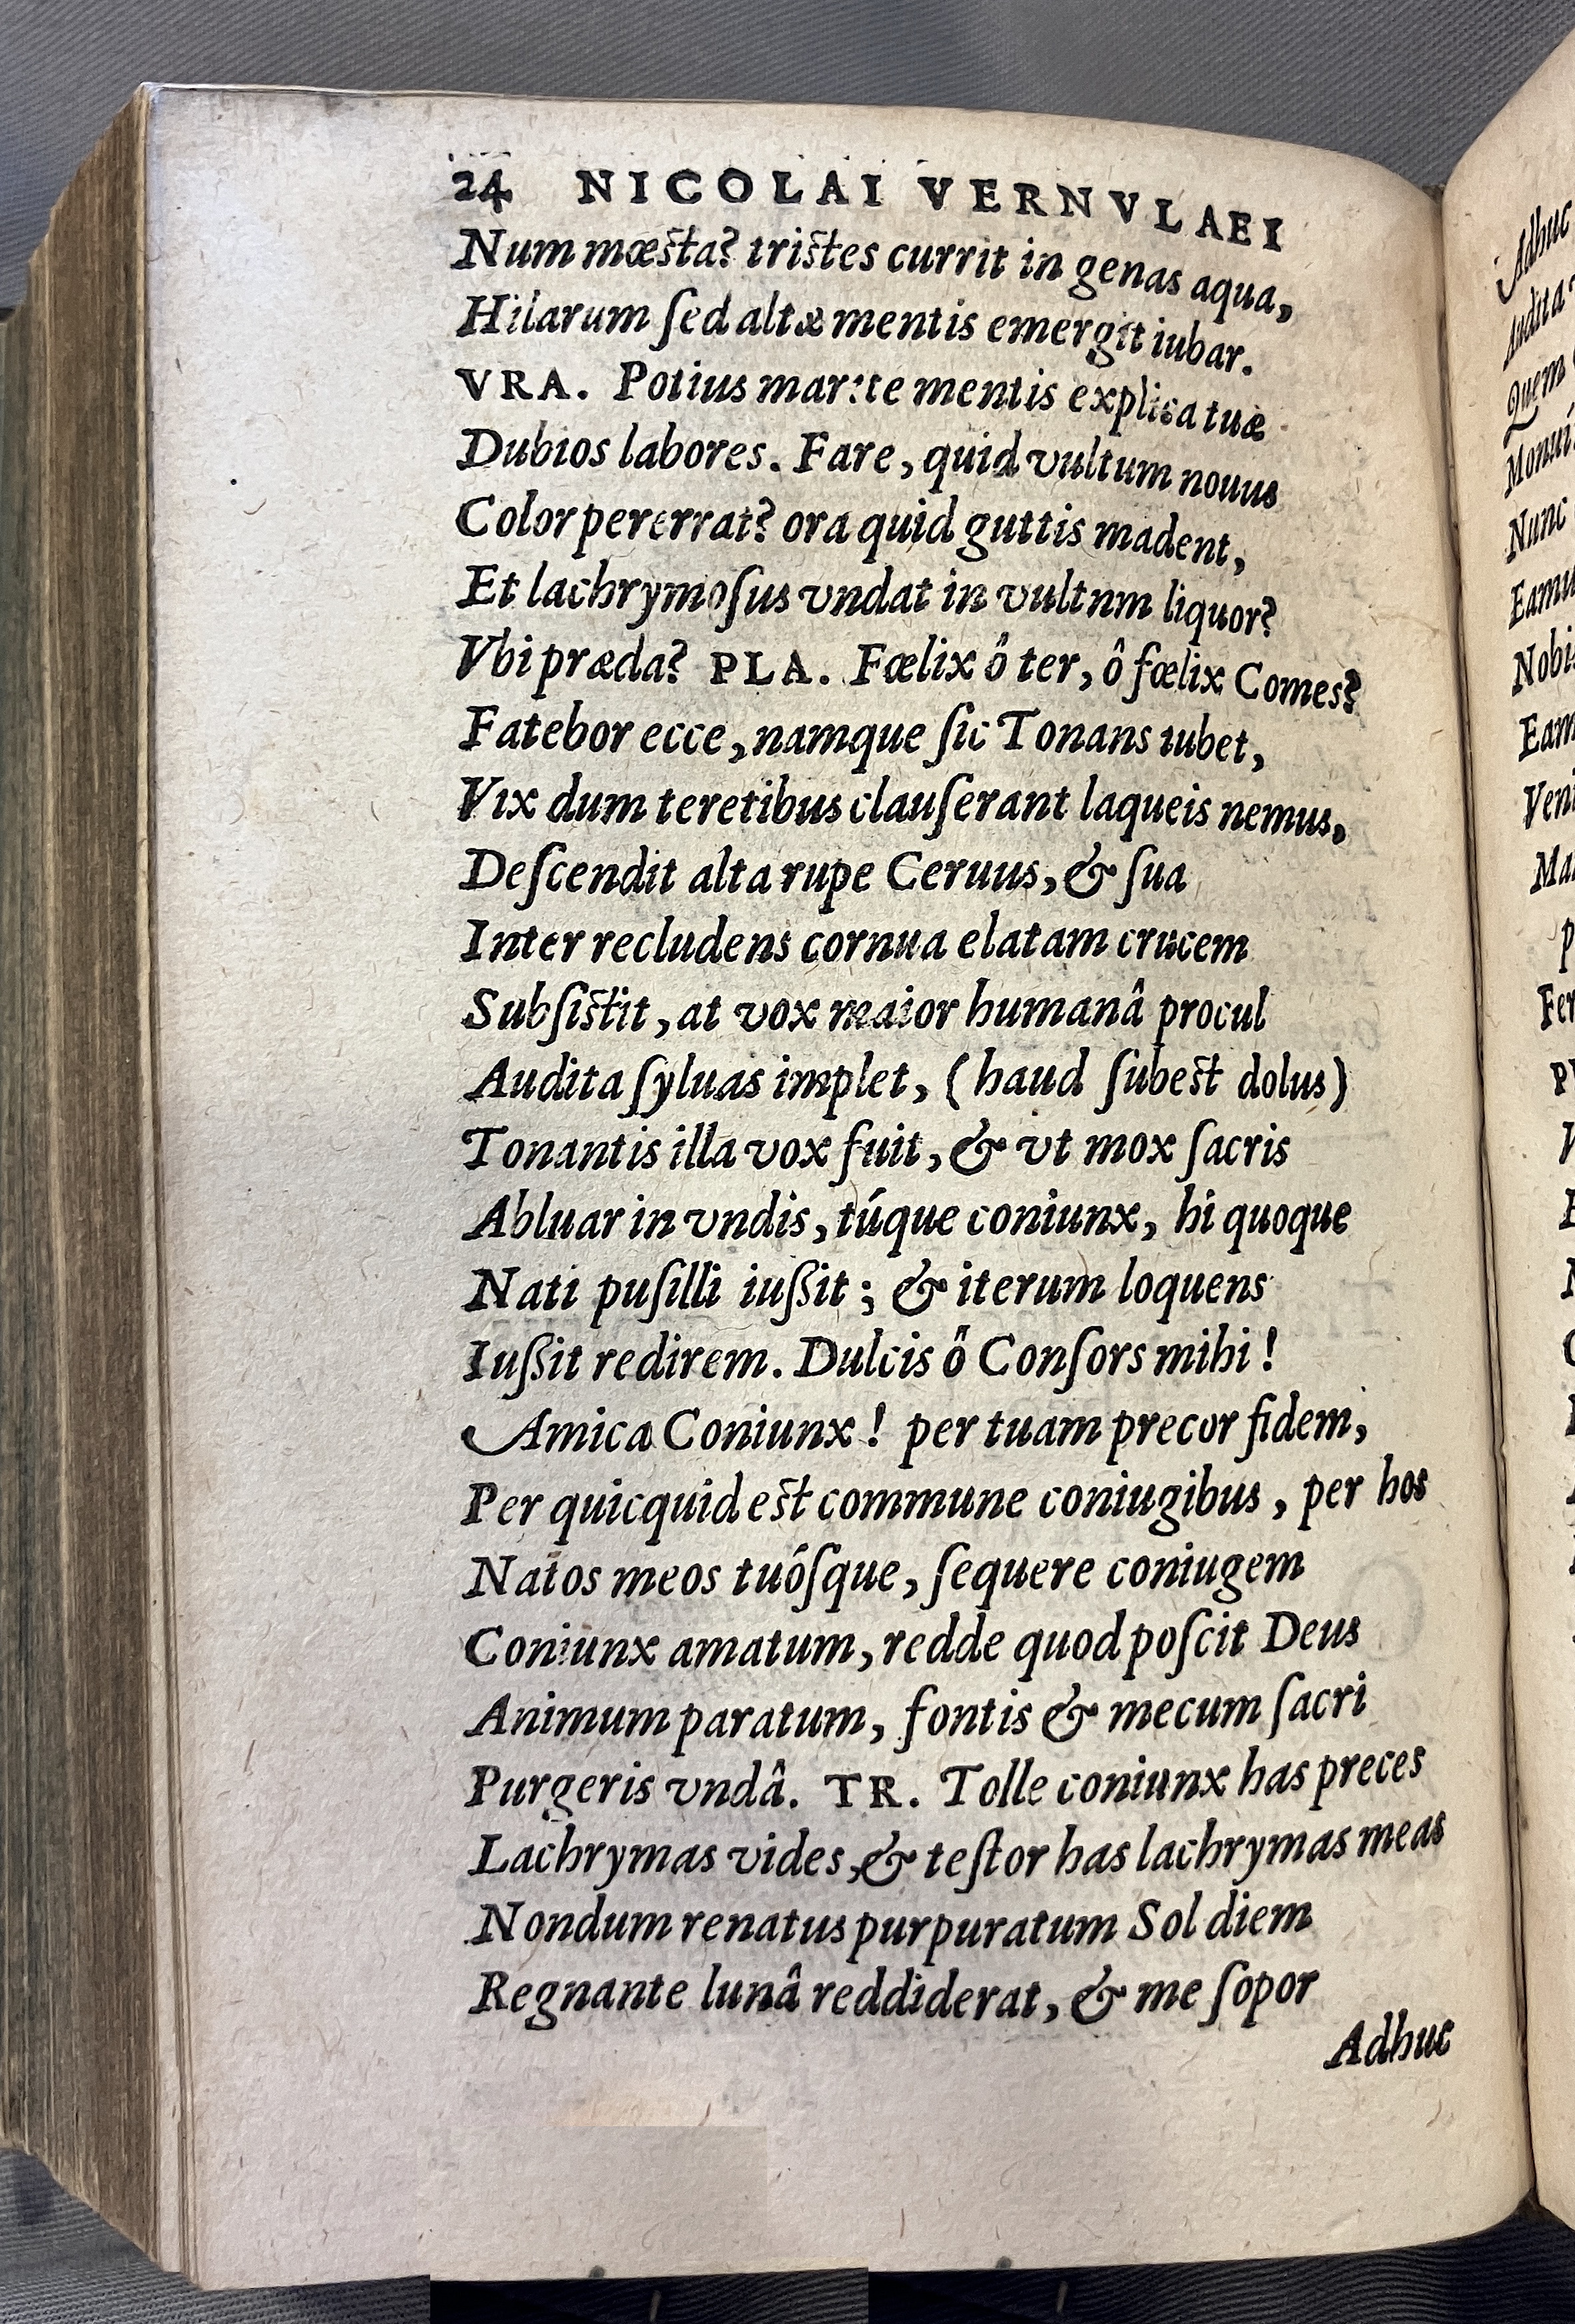 24 NICOLAI VERNVLAEI
Num mœſta? triſtes currit in genas aqua,
Hilarum ſed altæ mentis emergit iubar.
VRA. Potius marite mentis explica tuæ
Dubios labores. Fare, quid vultum nouus
Color pererrat? ora quid guttis madent,
Et lachrymoſus vndat in vultnm liquor?
Vbi præda? PLA. Fœlix ô ter, ô fœlix Comes?
Fatebor ecce, namque ſic Tonans iubet,
Vix dum teretibus clauſerant laqueis nemus,
Deſcendit alta rupe Ceruus, & ſua
Inter recludens cornua elatam crucem
Subſiſtit, at vox maior humanâ procul
Audita ſyluas implet, (haud ſubeſt dolus)
Tonantis illa vox fuit, & vt mox ſacris
Abluar in vndis, túque coniunx, hi quoque
Nati puſilli iuſſit; & iterum loquens
Iuſſit redirem. Dulcis ô Conſors mihi!
Amica Coniunx! per tuam precor fidem,
Per quicquid eſt commune coniugibus, per hos
Natos meos tuóſque, ſequere coniugem
Coniunx amatum, redde quod poſcit Deus
Animum paratum, fontis & mecum ſacri
Purgeris vndâ. TR. Tolle coniunx has preces
Lachrymas vides, & teſtor has lachrymas meas
Nondum renatus purpuratum Sol diem
Regnante lunâ reddiderat, & me ſopor
Adhuc
Adhuc
Audita
Quem
Nunc